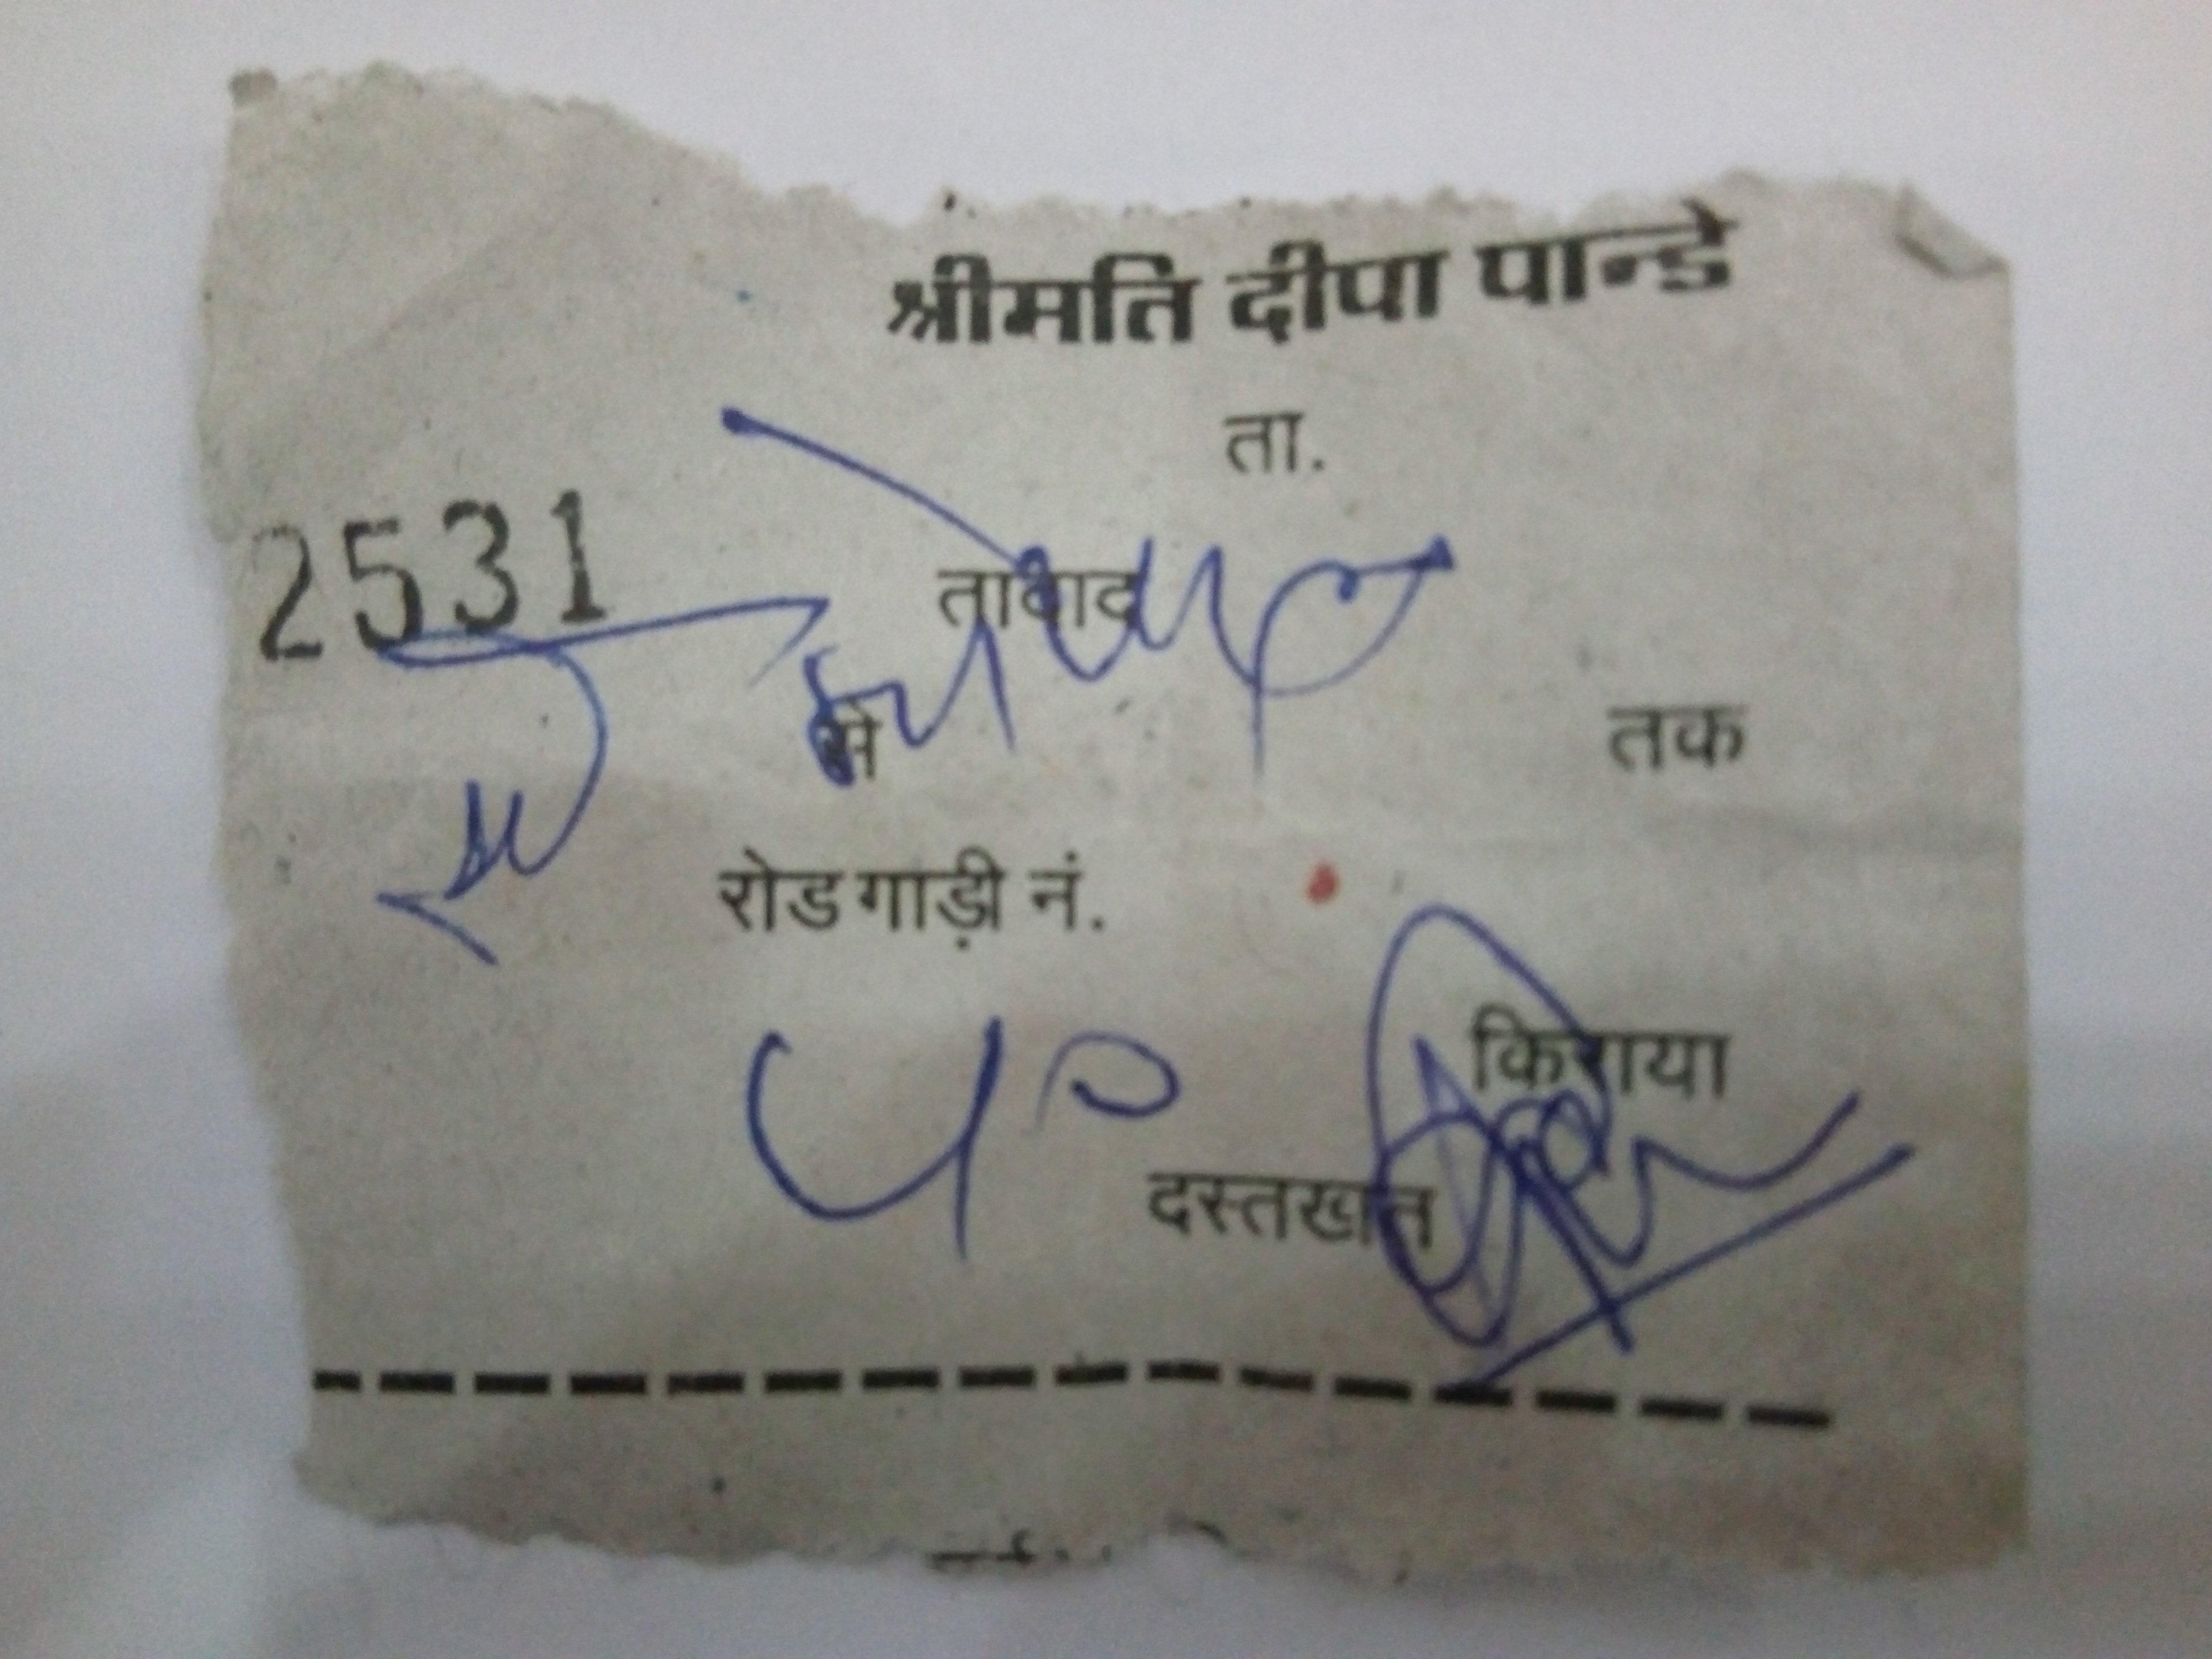 श्रीमति दीपा पान्डे
ता.
2531
तादाद
से तक
रोडगाड़ी नं.
किराया
५०
दस्तखत